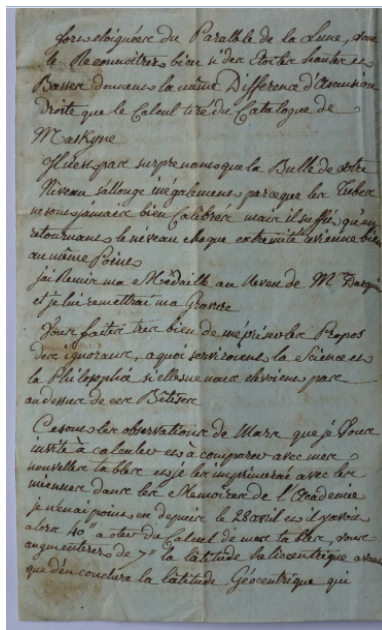 fors eloignées du Parallele de la Lune, vous
le Reconnoîtrez bien si des Etoiles hautes et
Basses donnent la même Difference d'Ascension
droite que le Calcul tiré du Catalogue de
Maskyne
Il n'est pas surprenant que la Bulle de votre
Niveau s'allonge inégalement parceque les Tubes
ne sont jamais bien Calibrés mais il suffit qu'en
retournant le niveau chaque extremité revienne bien
au même Point
j'ai Remis ma Médaille au Neveu de Mr Darquier
et je lui remettrai ma Gravure
Vous faites tres bien de mépriser les Propos
des ignorans, a quoi serviroient la Science et
la Philosophie si elles ne nous elevoient pas
au dessus de ces Bêtises
Ce sont les observations de Mars que je Vous
invite à calculer et à comparer avec mes
nouvelles tables et je les imprimerai avec les
miennes dans les Memoires de l'Academie
je n'en ai point eu depuis le 28 avril et il y avoit
alors 40" a oter du Calcul de mes tables, vous
augmenterez de 7" la latitude heliocentrique avant
que d'en conclure la latitude Géocentrique qui